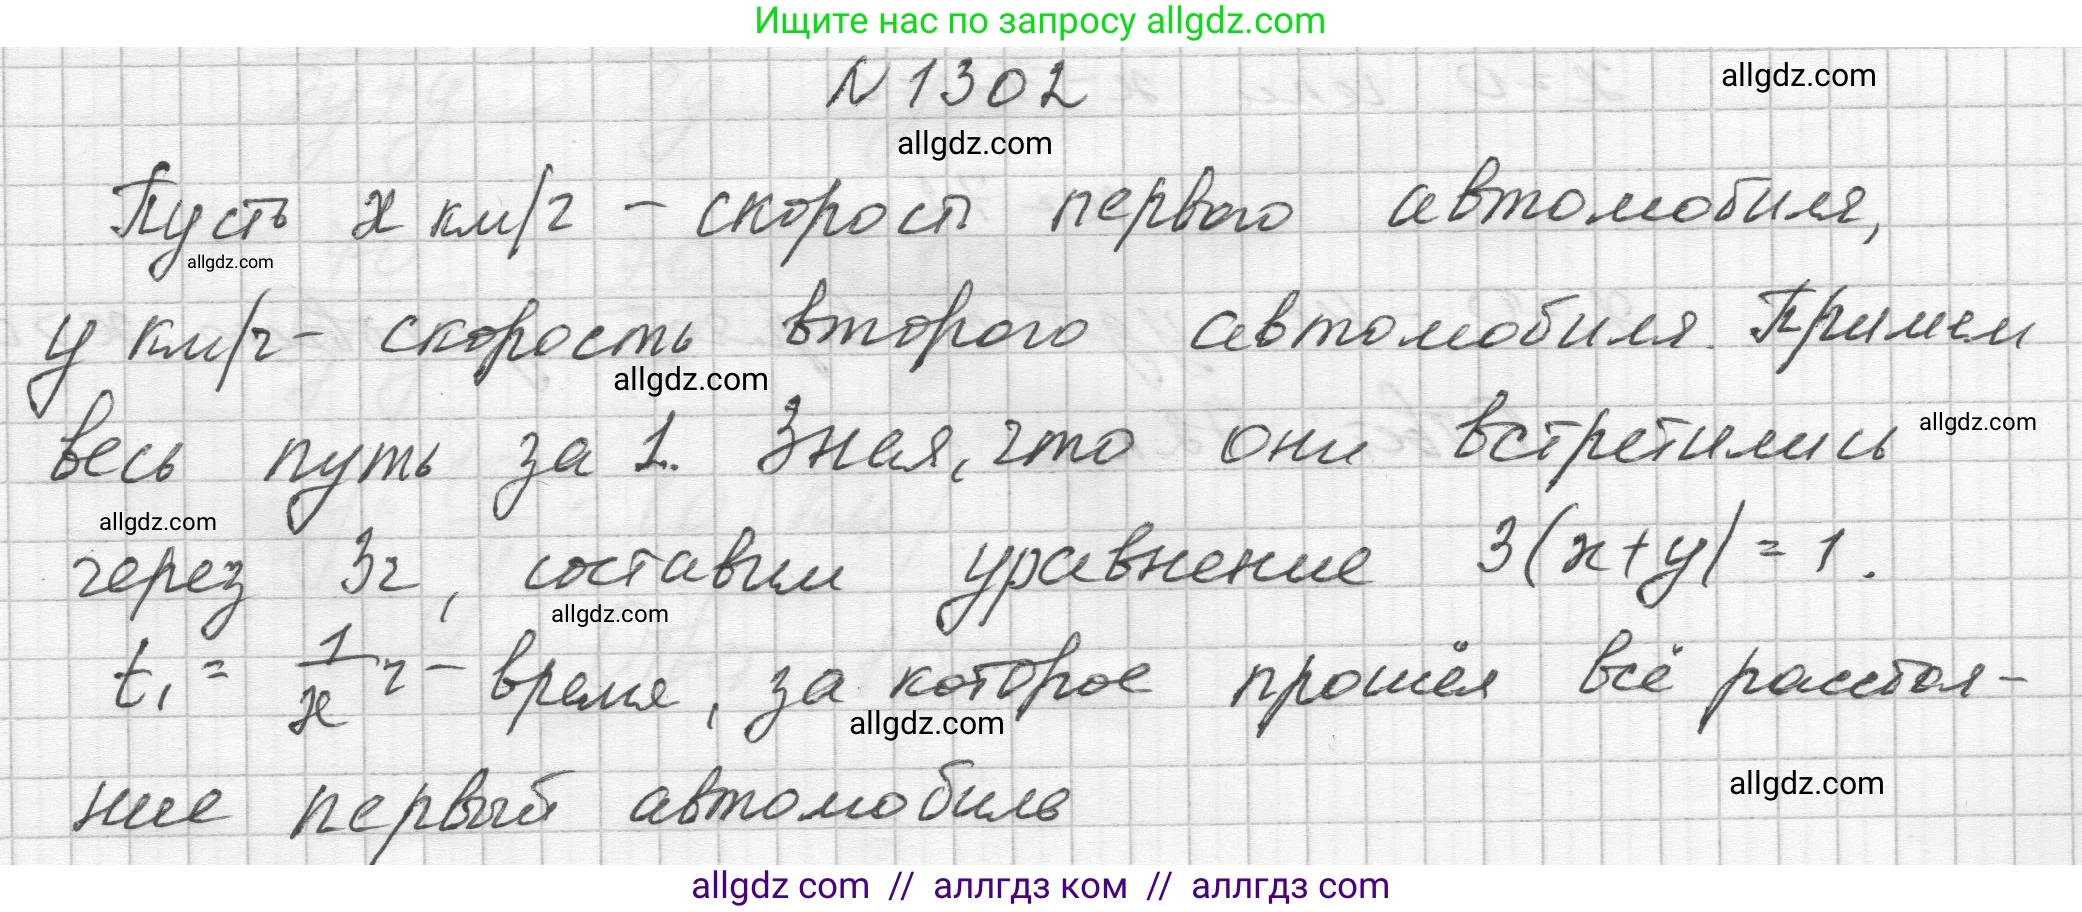 Ищите нас по запросу allgdz.com
N 1302
allgdz.com
allgdz.com
Пусть x км/ч – скорость первого автомобиля,
allgdz.com
y км/ч – скорость второго автомобиля. Примем
allgdz.com
весь путь за 1. Зная, что они встретились
allgdz.com
allgdz.com
через 3ч, составим уравнение 3(x+y)=1.
allgdz.com
t₁ = 1/x ч – время, за которое прошёл всё расстоя-
allgdz.com
ние первый автомобиль
allgdz.com
allgdz com // аллгдз ком // аллгдз com